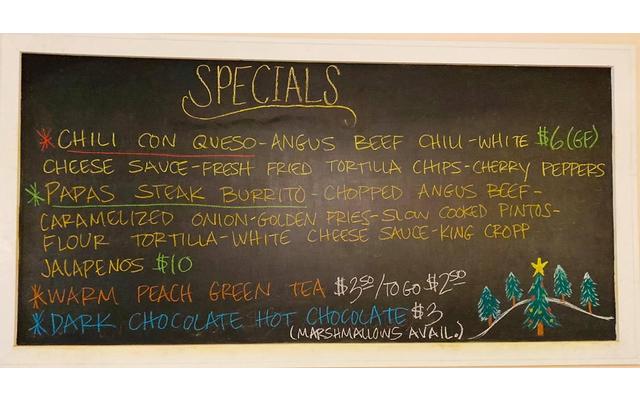 SPECIALS
* CHILI CON QUESO-ANGUS BEEF CHILI-WHITE $6 (GF)
CHEESE SAUCE-FRESH FRIED TORTILLA CHIPS-CHERRY PEPPERS
* PAPAS STEAK BURRITO-CHOPPED ANGUS BEEF-
CARAMELIZED ONION-GOLDEN FRIES-SLOW COOKED PINTOS-
FLOUR TORTILLA-WHITE CHEESE SAUCE-KING CROPP
JALAPENOS $10
* WARM PEACH GREEN TEA $3.50/TO GO $2.50
* DARK CHOCOLATE HOT CHOCOLATE $3
(MARSHMALLOWS AVAIL.)